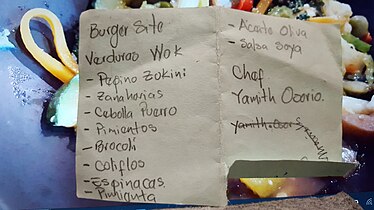 Burger Site
Verduras Wok
- Pepino Zokini
- Zanahorias
- Cebolla Puerro
- Pimientos
- Brocoli
- Coliflos
- Espinacas
- Pimienta
- Aceite Oliva
- Salsa Soya
Chef
Yamith Osorio.